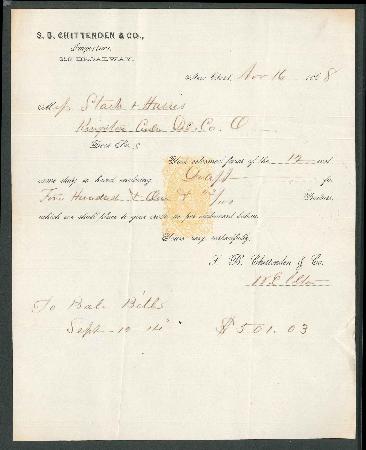 S. B. CHITTENDEN & CO.,
Importers,
BROADWAY.
New York, Nov 16 1868
Mess Stark & Harris
Kingston Center De. Co. O
Dear Sirs
Your esteemed favor of the 14 inst
came duly to hand enclosing Draft for
Five Hundred & One & 03/100 Dollars,
which we shall place to your credit as per statement below.
Yours very respectfully,
S. B. Chittenden & Co.
To Bal. Bill
Sept 10 $501.03